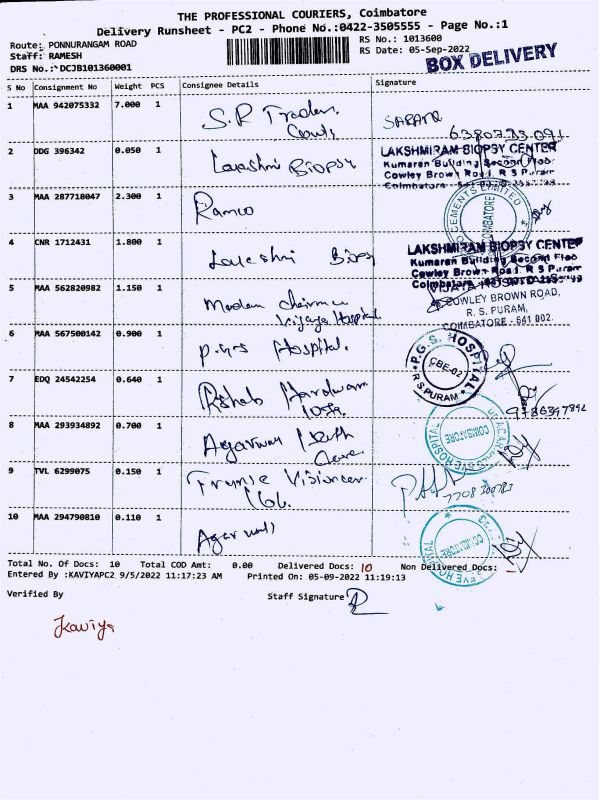 THE PROFESSIONAL COURIERS, Coimbatore
Delivery Runsheet - PC2 - Phone No.:0422-3505555 - Page No.:1
Route: PONNURANGAM ROAD
Staff: RAMESH
DRS No.: DCJB101360001
RS No.: 1013600
RS Date: 05-Sep-2022
BOX DELIVERY
S No Consignment No Weight PCS Consignee Details Signature
1 MAA 942075332 7.000 1 S.R Traders
6380783091
2 DDG 396342 0.050 1 Biopsy
LAKSHMIRAM BIOPSY CENTER
Kumaran Building Second Floo
Cowley Brown Road, R S Puram
Coimbatore
3 MAA 287718047 2.300 1 Ramco
CEMENTS LIMITED
COIMBATORE
4 CNR 1712431 1.800 1
LAKSHMIRAM BIOPSY CENTER
Kumaran Building Second Floo
Cowley Brown Road, R S Puram
Coimbatore
5 MAA 562820982 1.150 1 Vijaya Hospital
VIJAYA HOSPITAL
COWLEY BROWN ROAD,
R. S. PURAM,
COIMBATORE - 641 002.
6 MAA 567500142 0.900 1 P.G.S Hospital.
P.G.S. HOSPITAL
CBE-02
R S PURAM
7 EDQ 24542254 0.640 1 Hardware
9786397892
8 MAA 293934892 0.700 1 Agarwal Care
EYE HOSPITAL
COIMBATORE
9 TVL 6299075 0.150 1 Frame
7708300783
10 MAA 294790810 0.110 1 Agarwal
EYE HOSPITAL
COIMBATORE
Total No. Of Docs: 10 Total COD Amt: 0.00 Delivered Docs: 10 Non Delivered Docs: -
Entered By :KAVIYAPC2 9/5/2022 11:17:23 AM Printed On: 05-09-2022 11:19:13
Verified By Staff Signature
Kaviya